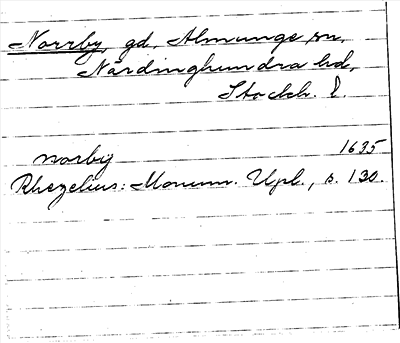 Norrby, gd, Almunge sn,
Närdinghundra hd,
Stockh. l.
norby 1635
Rhezelius: Monum. Upl., s. 130.